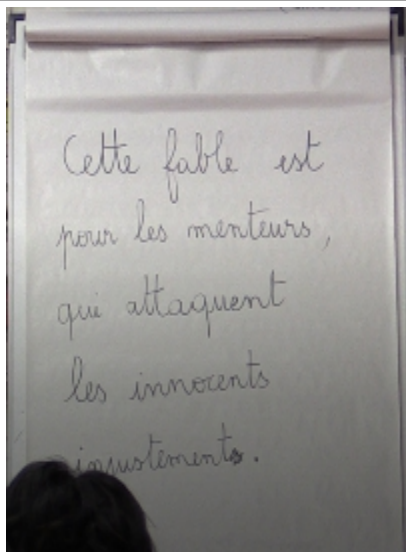 Cette fable est
pour les menteurs,
qui attaquent
les innocents
injustements.